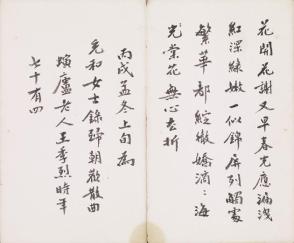 花開花謝又早春光應漏洩
紅深綠嫩一似錦屏列觸處
繁華都綻嫩嬌滴滴海
光棠花無心去折
丙戌孟冬上旬為
毛和女士錄歸朝歡散曲
螾廬老人王季烈時年
七十有四